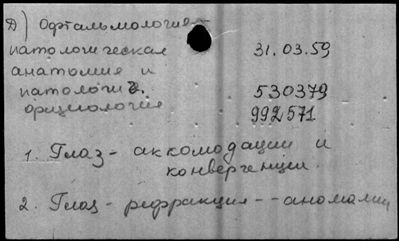 Д) Офтальмология-
патологическая
31.03.59
анатомия и
патологич.
530379
физиология
992571
1. Глаз - аккомодации и
конвергенции.
2. Глаз - рефракция - - аномалии